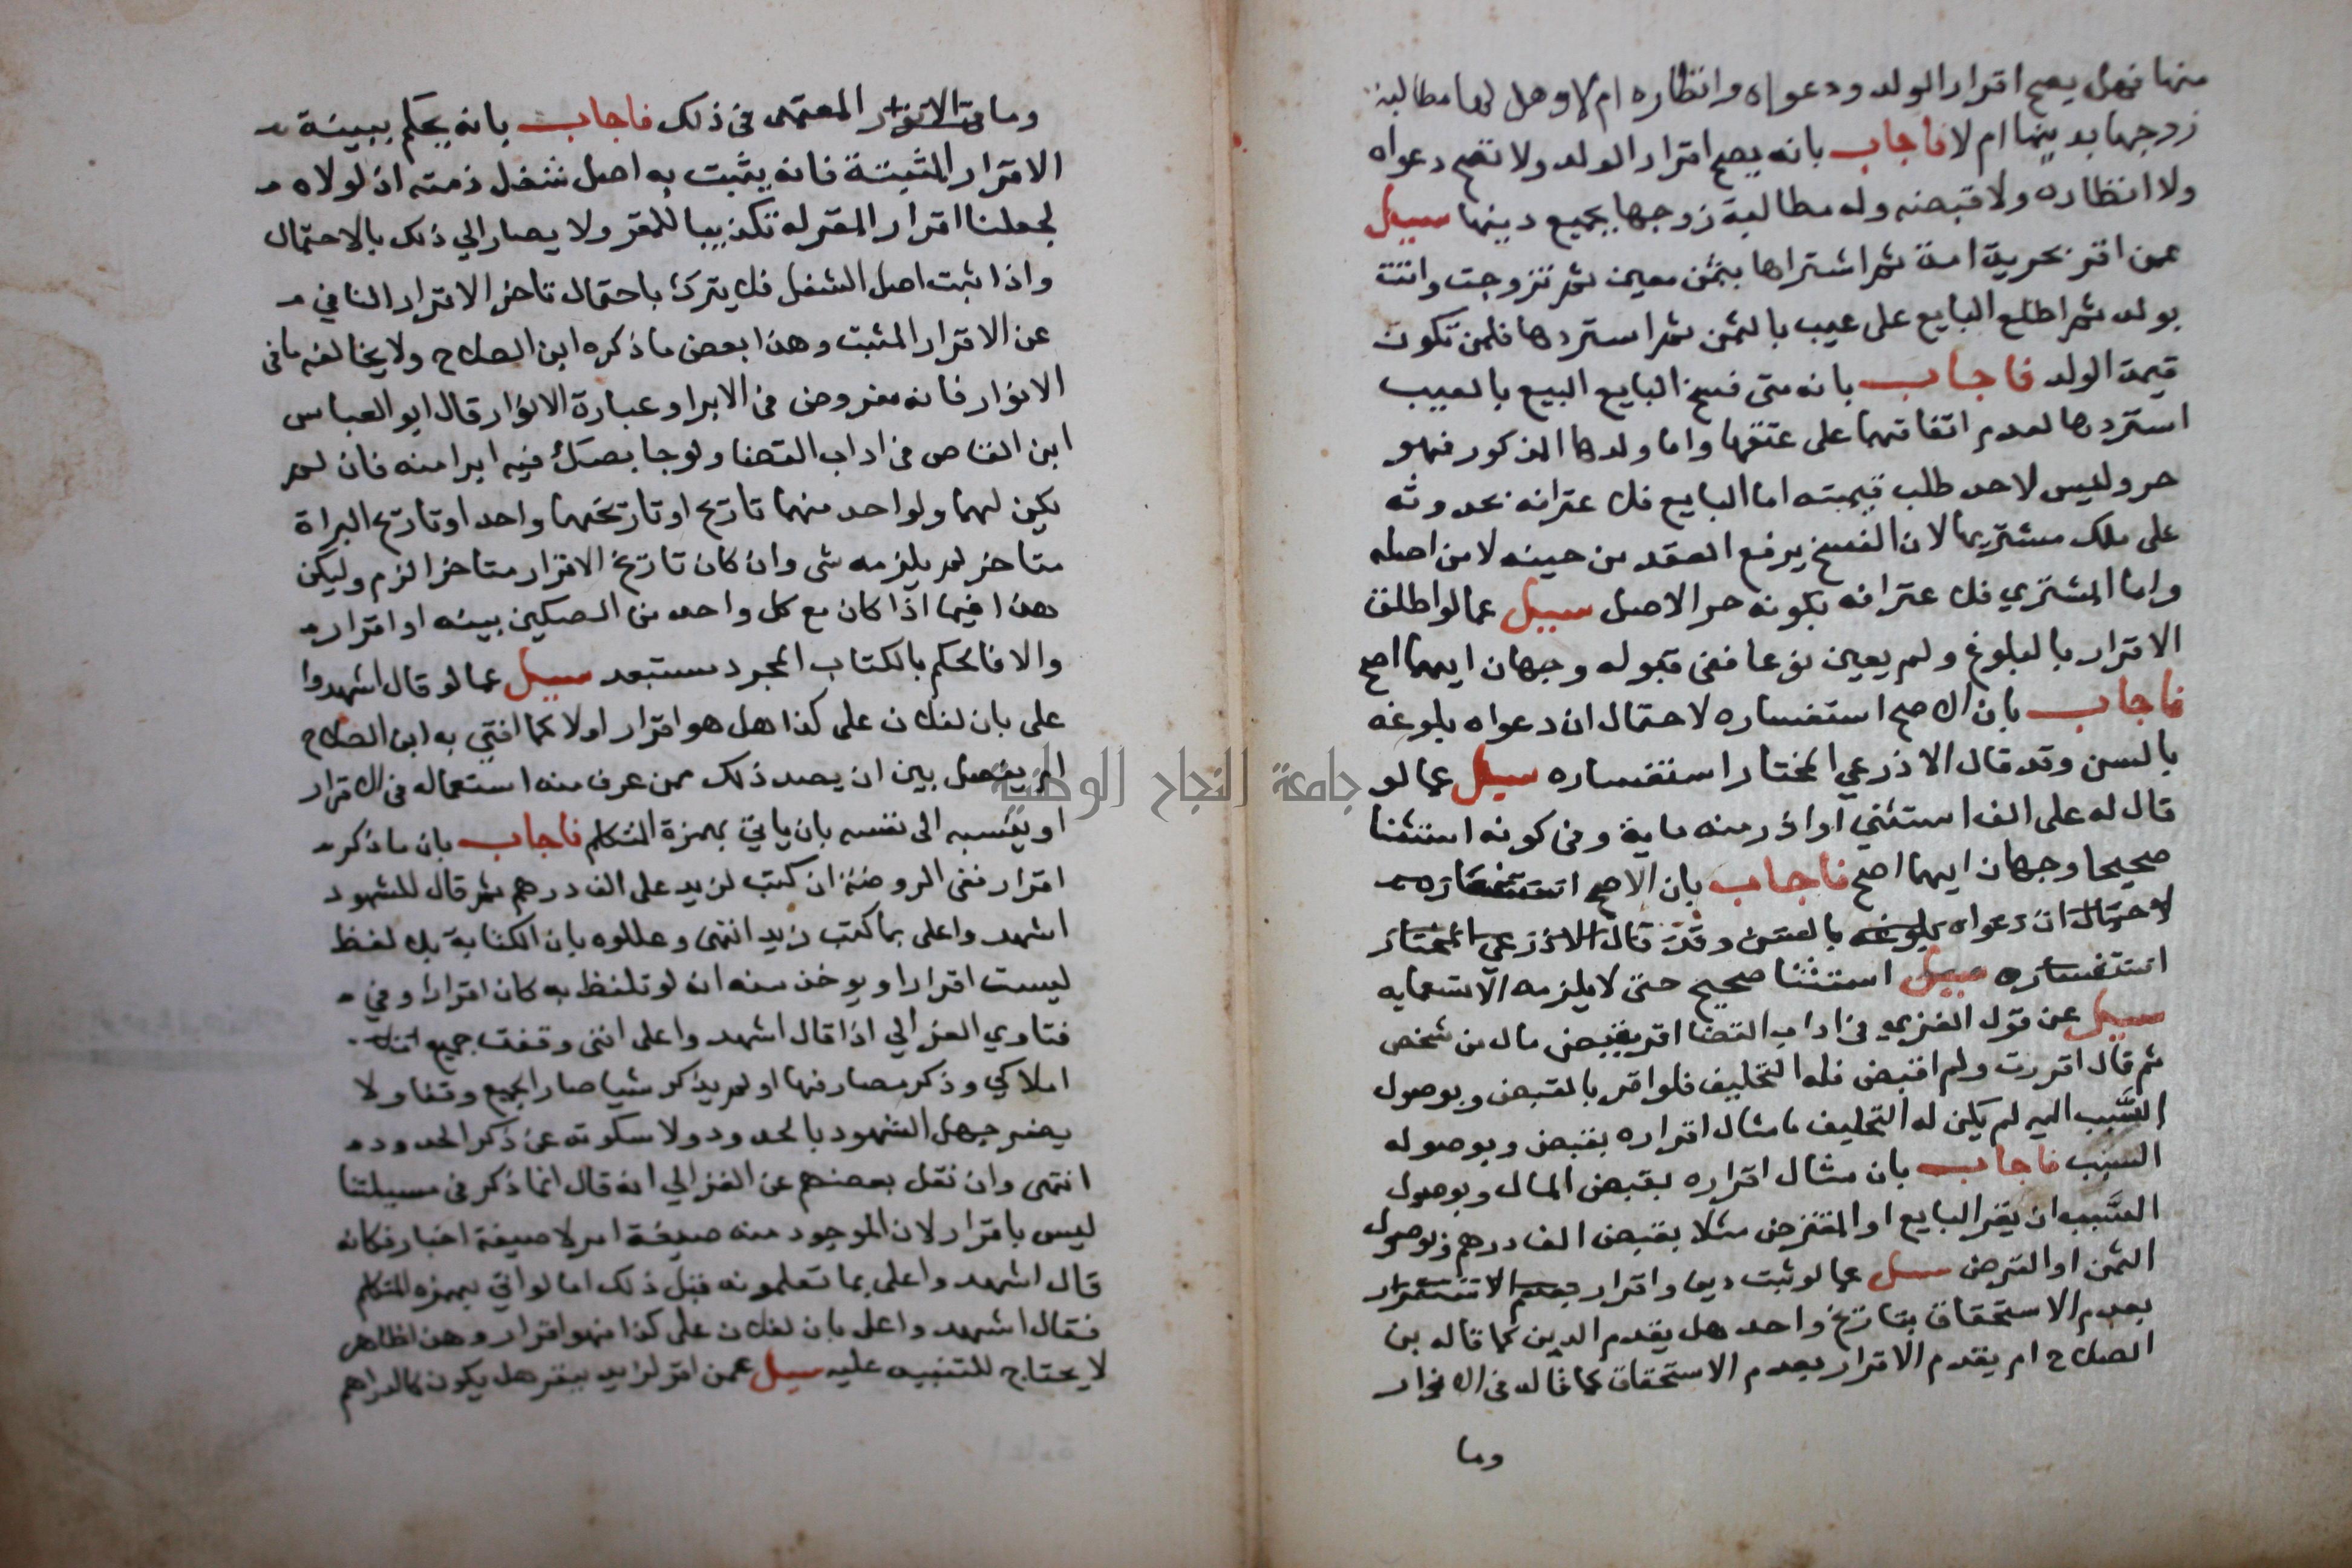 منها فهل يصح اقرار الولد ودعواه وانظاره ام لا وهل لها مطالبة
زوجها بدينها ام لا فاجاب بانه يصح اقرار الولد ولا تصح دعواه
ولا انظاره ولا قبضه وله مطالبة زوجها بجميع دينها سييل
عمن اقر بحرية امة ثم اشتراها بثمن معين ثم تزوجت واتت
بولد ثم اطلع البايع على عيب بالثمن ثم استردها فلمن تكون
قيمة الولد فاجاب بانه متى فسخ البايع البيع بالعيب
استردها لعدم اتفاقهما على عتقها واما ولدها المذكور فهو
حر وليس لاحد طلب قيمته اما البايع فلاعترافه بحدوثه
على ملك مشتريها لان الفسخ يرفع العقد من حينه لا من اصله
واما المشتري فلاعترافه بكونه حر الاصل سييل عما لو اطلق
الاقرار بالبلوغ ولم يعين نوعا ففي قبوله وجهان ايهما اصح
فاجاب بان الاصح استفساره لاحتمال ان دعواه بلوغه
بالسن وقد قال الاذرعي المختار استفساره سييل عما لو
قال له على الف استثني او اذر منه ماية وفي كونه استثنا
صحيحا وجهان ايهما اصح فاجاب بان الاصح استفساره
لاحتمال ان دعواه بلوغه بالسن وقد قال الاذرعي المختار
استفساره سييل استثنا صحيح حتى لا يلزمه الا تسعماية
سييل عن قول الغزي في اداب القضا اقر بقبض مال من شخص
ثم قال اقررت ولم اقبض فله التحليف فلو اقر بالقبض وبوصول
السَّبب اليه لم يكن له التحليف ما مثال اقراره بقبض وبوصوله
السبب فاجاب بان مثال اقراره بقبض المال وبوصول
السَّبب ان يقر البايع او المقترض مثلا بقبض الف درهم وبوصول
الثمن او القرض سييل عما لو ثبت دين واقرار بعدم الاستقرار
بعدم الاستحقاق بتاريخ واحد هل يقدم الدين كما قاله بن
الصلاح ام يقدم الاقرار بعدم الاستحقاق كما قاله في الانوار
وما
وما في الانوار المعتمد في ذلك فاجاب بانه يحكم ببينة
الاقرار المثبتة فانه يثبت به اصل شغل ذمته اذ لولاه
لجعلنا اقرار المقر له تكذيبا للمقر ولا يصار الي ذلك بالاحتمال
واذا ثبت اصل الشغل فلا يترك باحتمال تاخر الاقرار النافي
عن الاقرار المثبت وهذا بعض ما ذكره ابن الصلاح ولا يخالفه ما في
الانوار فانه مفروض في الابرا وعبارة الانوار قال ابو العباس
ابن القاص في اداب القضا ولو جا بصك فيه ابرا منه فان لم
يكن لهما ولواحد منهما تاريخ او تاريخهما واحد او تاريخ البراة
متاخر لم يلزمه شي وان كان تاريخ الاقرار متاخرا لزم وليكن
هذا فيما اذا كان مع كل واحد من الصكين بينه او اقرار
والا فالحكم بالكتاب المجرد مستبعد سييل عما لو قال اشهدوا
على بان لفلان على كذا هل هو اقرار اولا كما افتي به ابن الصلاح
ام يفصل بين ان يصدر ذلك ممن عرف منه استعماله في الاقرار
او ينسبه الى نفسه بان ياتي بهمزة المتكلم فاجاب بان ما ذكر
اقرار ففي الروضة ان كتب لزيد على الف درهم ثم قال للشهود
اشهدوا على بما كتب زيد انتهى وعللوه بان الكتابة بلا لفظ
ليست اقرارا ويوخذ منه انه لو تلفظ به كان اقرارا وفي
فتاوي الغزالي اذا قال اشهدوا على انني وقفت جميع
املاكي وذكر مصارفها او لم يذكر شيا صار الجميع وقفا ولا
يضر جهل الشهود بالحدود ولا سكوته عن ذكر الحدود
انتهى وان نقل بعضهم عن الغزالي انه قال انما ذكر في مسيلتنا
ليس باقرار لان الموجود منه صيغة امر لا صيغة اخبار فكانه
قال اشهدوا على بما تعلمونه قبل ذلك اما لو اتي بهمزه المتكلم
فقال اشهدوا على بان لفلان على كذا فهو اقرار وهذا ظاهر
لا يحتاج للتنبيه عليه سييل عمن اقر لزيد ببقر هل يكون كالدراهم
جامعة النجاح الوطنية